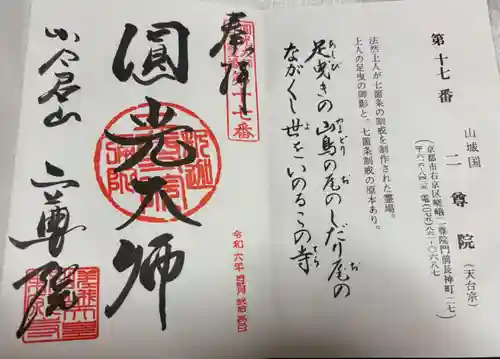 第十七番
山城国
二尊院（天台宗）
（京都市右京区嵯峨二尊院門前長神町二七）
（〒六一六-八四二五 電（〇七五）八六一-〇六八七）
法然上人が七箇条の制戒を制作された霊場。
上人の足曳の御影と、七箇条制戒の原本あり。
足曳きの山鳥の尾のしだり尾の
ながくし世をいのるこの寺
奉拝
第十七番
圓光大師
小倉山
二尊院
令和六年